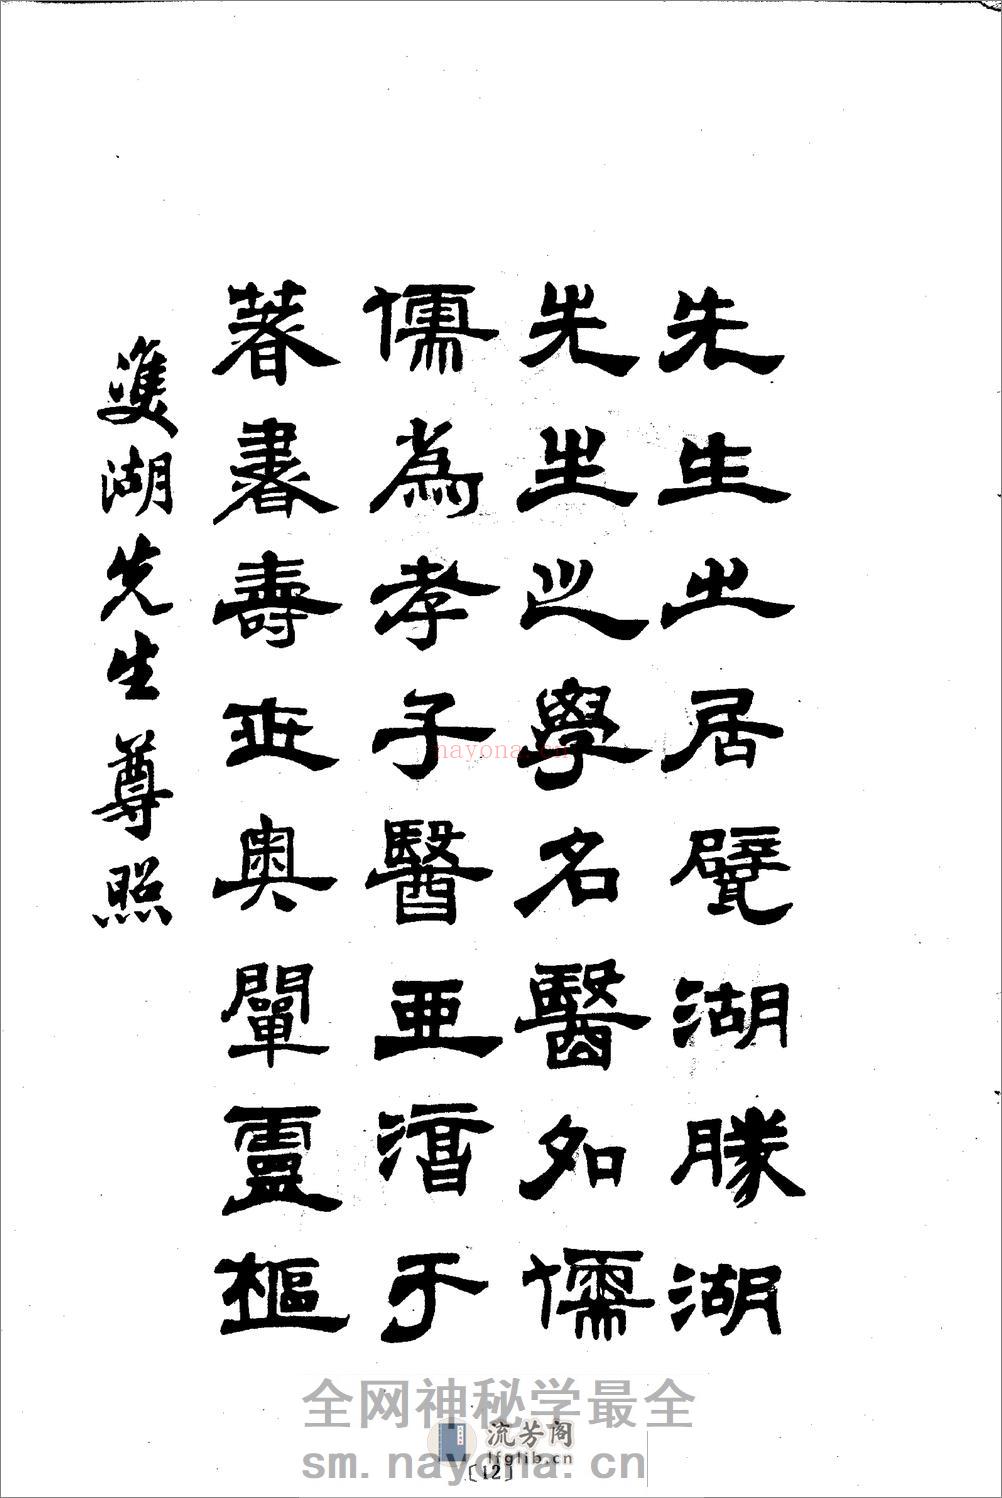 先生之居甓湖勝湖
先生之學名醫名儒
儒為孝子醫亞湻于
著書壽世奧闡靈樞
雙湖先生尊照
nayona.cn
全网神秘学最全
流芳阁
lfglib.cn
sm.nayona.cn
〔12〕